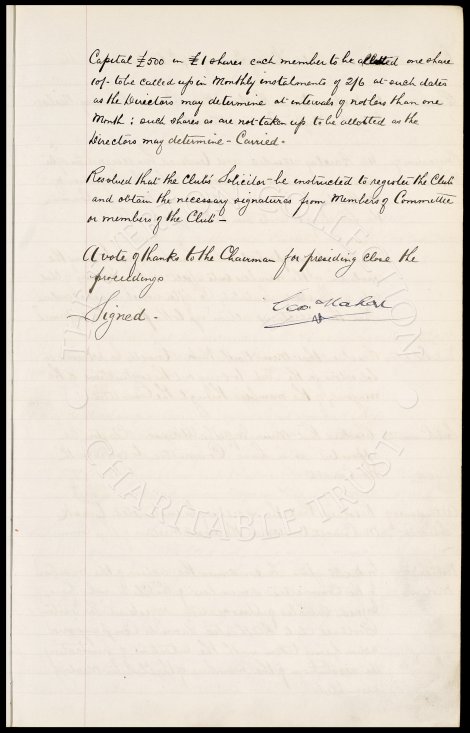 Capital £500 in £1 shares each member to be allotted one share
10/- to be called up in Monthly instalments of 2/6 at such dates
as the Directors may determine at intervals of not less than one
Month; such shares as are not taken up to be allotted as the
Directors may determine - Carried.
Resolved that the Club's Solicitor be instructed to register the Club
and obtain the necessary signatures from Members of Committee
or members of the Club -
A vote of thanks to the Chairman for presiding close the
proceedings
Signed - Geo.
CHARITABLE TRUST